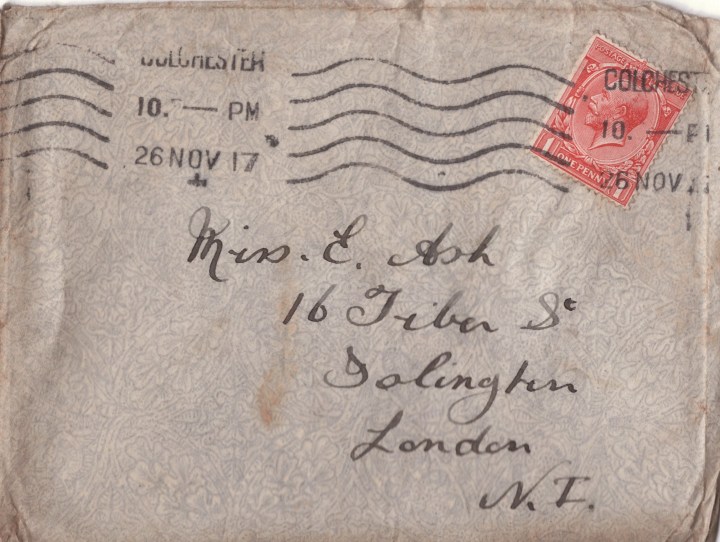 COLCHESTER
10. — PM
26 NOV 17
COLCHEST
10. —
26 NOV
POSTAGE
1 ONE PENNY 1
Miss. E. Ash
16 Tiber St
Islington
London
N.1.